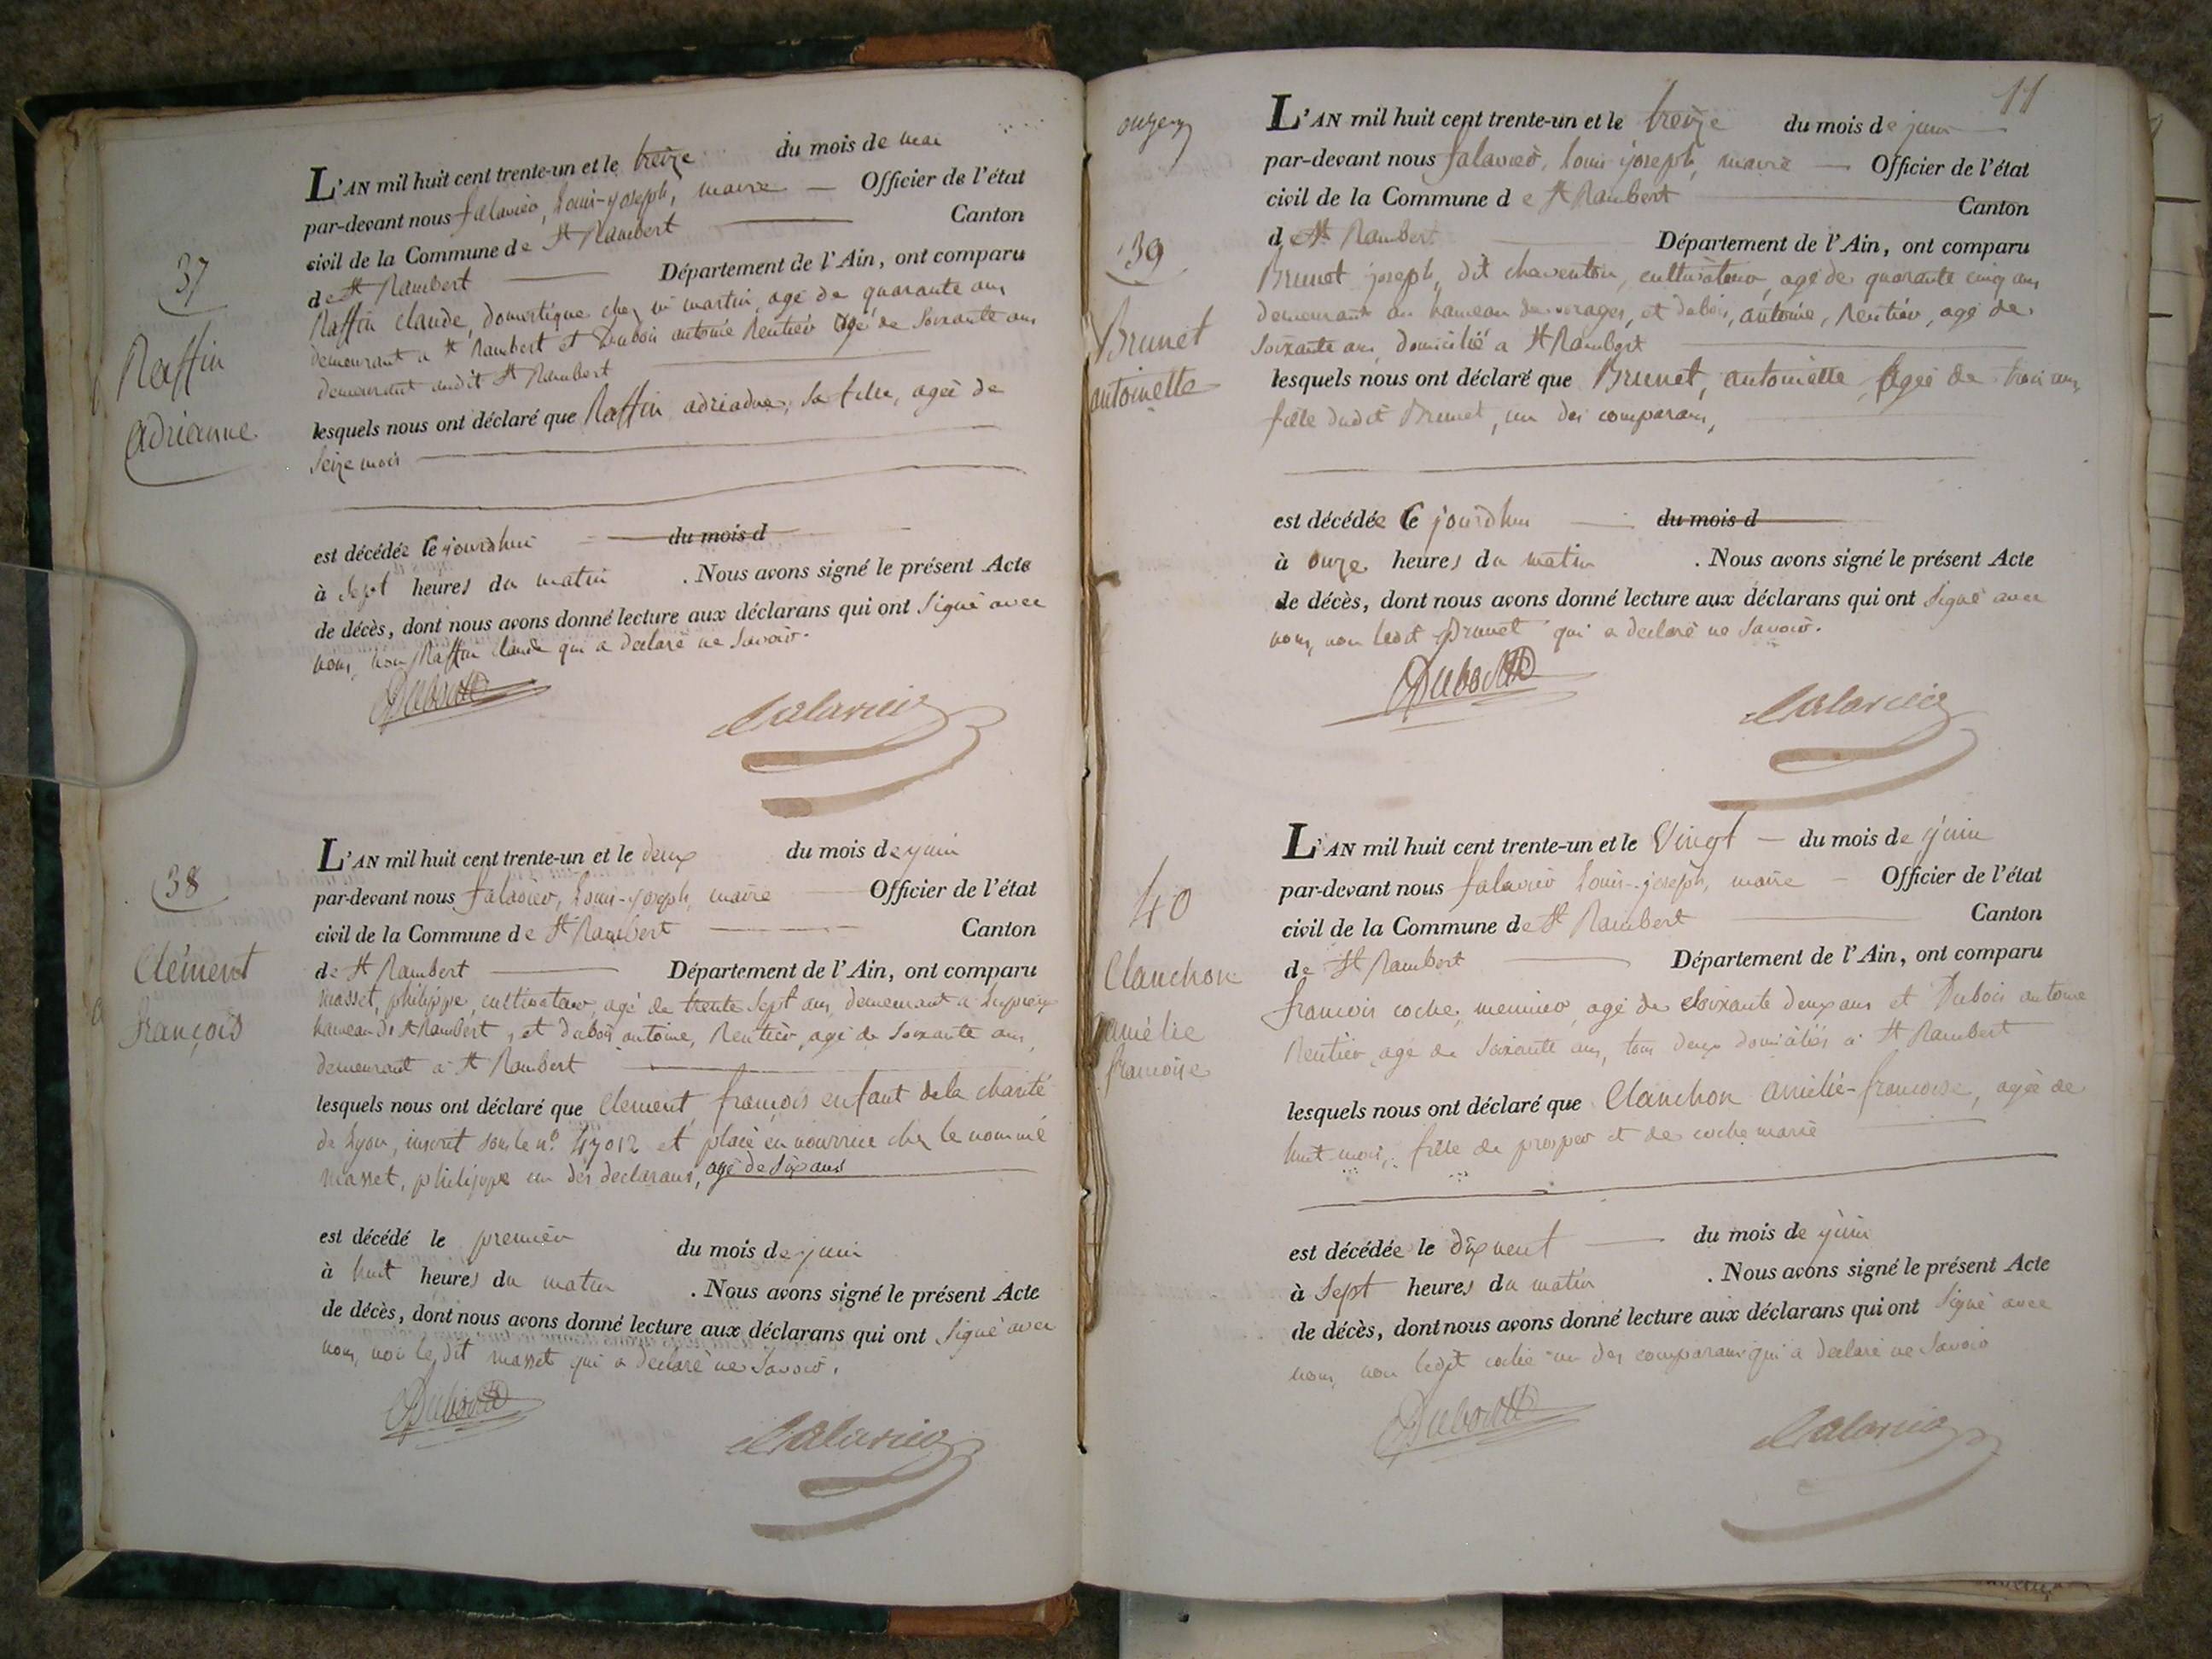 37
Raffin
adrianne
L'AN mil huit cent trente-un et le treize du mois de mai
par-devant nous falavier, louis-joseph, maire — Officier de l'état
civil de la Commune de St Rambert Canton
de St Rambert Département de l'Ain, ont comparu
Raffin claude, domestique chez mr martin, agé de quarante ans
demeurant a St Rambert et Dubois antoine Rentier agé de soixante ans
demeurant audit St Rambert
lesquels nous ont déclaré que Raffin adriadne, sa fille, ageé de
seize mois
est décédée le jourdhui du mois d
à sept heures du matin . Nous avons signé le présent Acte
de décès, dont nous avons donné lecture aux déclarans qui ont signé avec
nous, non Raffin claude qui a declaré ne savoir.
Dubois
falavier
38
Clément
françois
L'AN mil huit cent trente-un et le deux du mois de juin
par-devant nous falavier, louis-joseph, maire Officier de l'état
civil de la Commune de St Rambert Canton
de St Rambert Département de l'Ain, ont comparu
masset, philippe, cultivateur, agé de trente sept ans, demeurant a
hameau de St Rambert, et dubois antoine, Rentier, agé de soixante ans,
demeurant a St Rambert
lesquels nous ont déclaré que Clement, françois enfant de la charité
de Lyon, inscrit sous le n.o 47012 et placé en nourrice chez le nommé
masset, philippe un des declarans, agé de six ans
est décédé le premier du mois de juin
à huit heures du matin . Nous avons signé le présent Acte
de décès, dont nous avons donné lecture aux déclarans qui ont signé avec
nous, non le dit masset qui a declaré ne savoir.
Dubois
falavier
11
onze
39
Brunet
antoinette
L'AN mil huit cent trente-un et le treize du mois de juin
par-devant nous falavier, louis joseph, maire — Officier de l'état
civil de la Commune de St Rambert Canton
de St Rambert Département de l'Ain, ont comparu
Brunet joseph, dit chaventon, cultivateur, agé de quarante cinq ans
demeurant au hameau de, et dubois, antoine, Rentier, agé de
soixante ans, domicilié a St Rambert
lesquels nous ont déclaré que Brunet, antoinette, ageé de trois ans,
fille dudit Brunet, un des comparans,
est décédée le jourdhui du mois d
à onze heures du matin . Nous avons signé le présent Acte
de décès, dont nous avons donné lecture aux déclarans qui ont signé avec
nous, non ledit Brunet qui a declaré ne savoir.
Dubois
falavier
40
Clanchon
amélie
francoise
L'AN mil huit cent trente-un et le Vingt — du mois de juin
par-devant nous falavier louis-joseph, maire — Officier de l'état
civil de la Commune de St Rambert Canton
de St Rambert Département de l'Ain, ont comparu
francois coche, meunier, agé de soixante deux ans et Dubois antoine
Rentier, agé de soixante ans, tous deux domiciliés a St Rambert
lesquels nous ont déclaré que Clanchon amélie-francoise, ageé de
huit mois, fille de prosper et de coche marie
est décédée le dix neuf du mois de juin
à sept heures du matin . Nous avons signé le présent Acte
de décès, dont nous avons donné lecture aux déclarans qui ont signé avec
nous, non ledit coche un des comparans qui a declaré ne savoir
Dubois
falavier